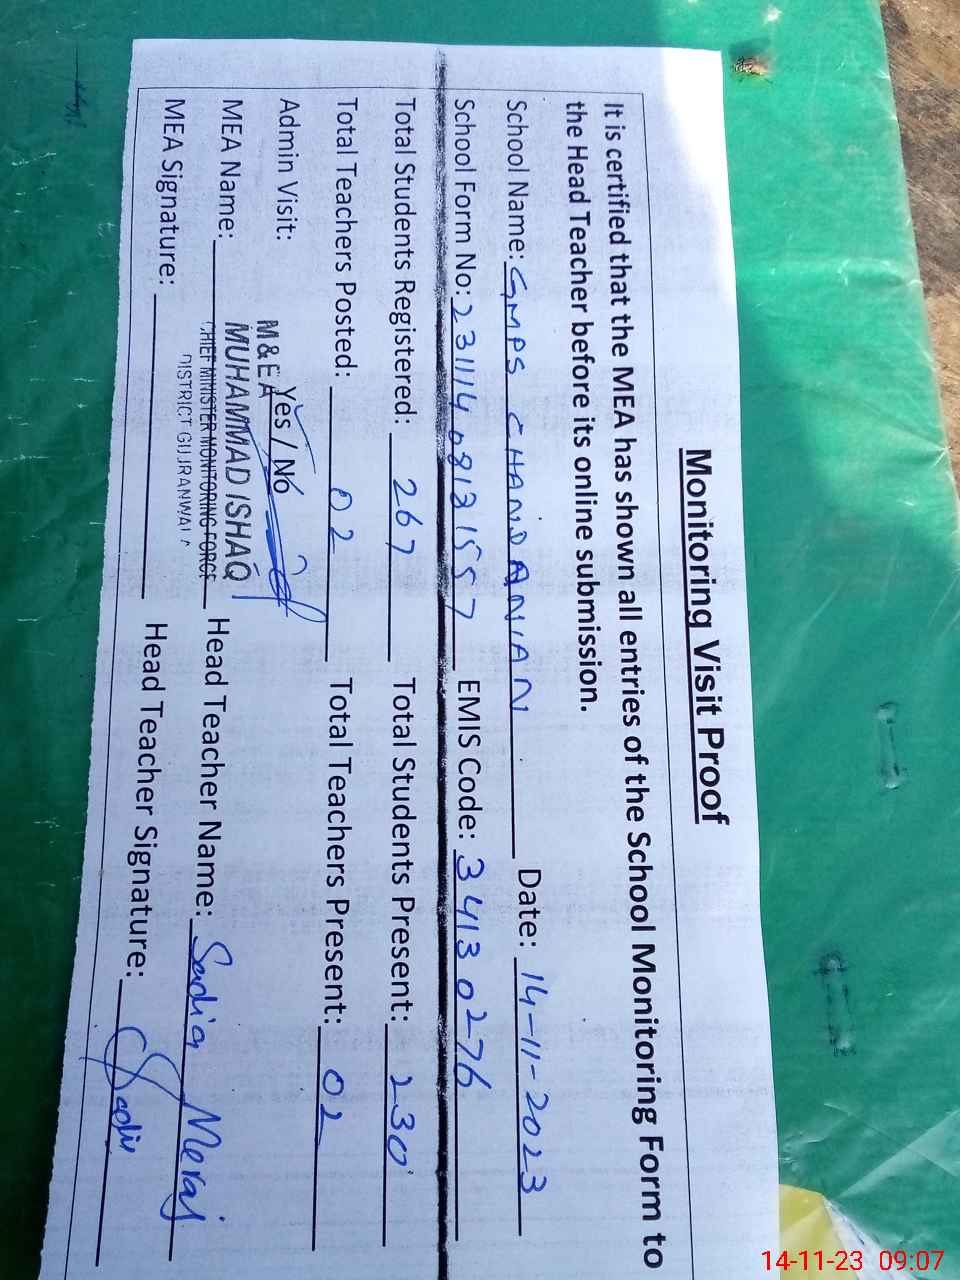 Monitoring Visit Proof
It is certified that the MEA has shown all entries of the School Monitoring Form to
the Head Teacher before its online submission.
School Name: GMPS CHANDANIAN Date: 14-11-2023
School Form No: 23111408131557 EMIS Code: 34130276
Total Students Registered: 267 Total Students Present: 230
Total Teachers Posted: 02 Total Teachers Present: 02
Admin Visit: Yes / No
M&EA
MEA Name: MUHAMMAD ISHAQ Head Teacher Name: Sadia Meraj
CHIEF MINISTER MONITORING FORCE
DISTRICT GUJRANWALA
MEA Signature: Head Teacher Signature: Sadia
14-11-23 09:07